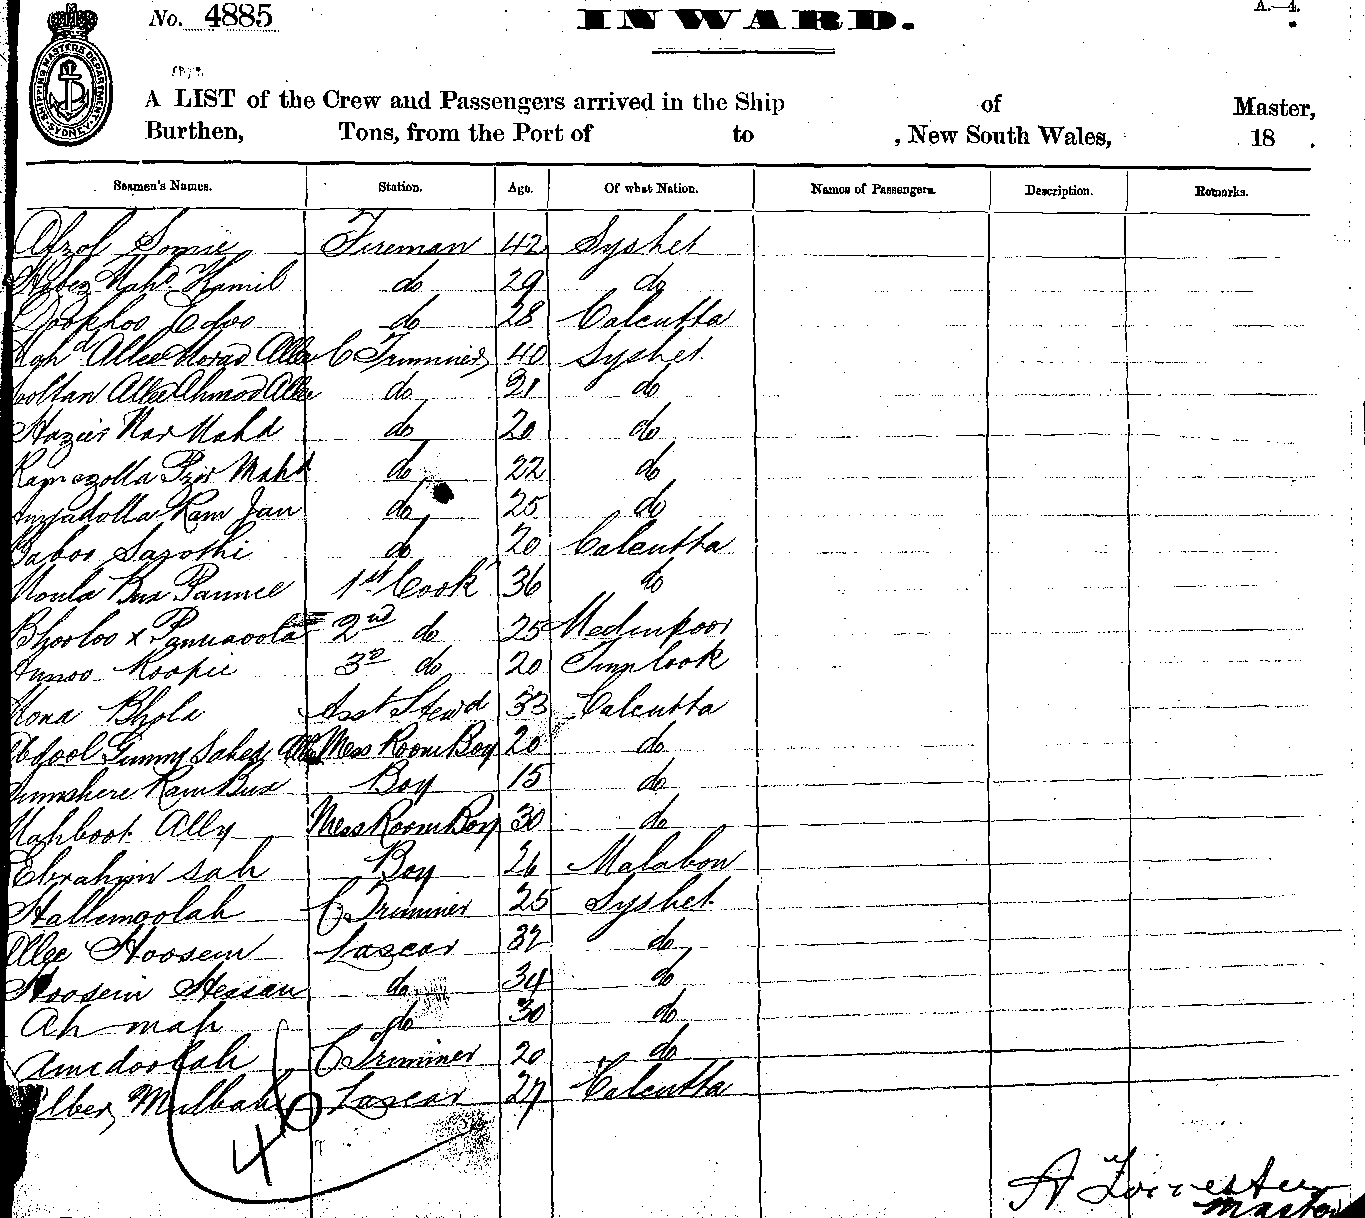 No. 4885
INWARD.
A.—4.
SHIPPING MASTERS DEPARTMENT SYDNEY
A LIST of the Crew and Passengers arrived in the Ship of Master,
Burthen, Tons, from the Port of to , New South Wales, 18 .
Seamen's Names. Station. Age. Of what Nation. Names of Passengers. Description. Remarks.
Afzol Somie Fireman 42 Syshet
Mahd Hamil do 29 do
do 28 Calcutta
Allee Morad Allee C Trimmer 40 Syshet
Allee Ahmad Allee do 21 do
Nar Mahd do 20 do
Ramezolla Mahd do 22 do
Ram Jan do 25 do
do 20 Calcutta
Moula Bux 1st Cook 36 do
Bhooloo x 2nd do 25 Medinpoor
Roopie 3rd do 20 Tumlook
Mona Bhola Asst Stewd 33 Calcutta
Abdool Gunny Mess Room Boy 20 do
Ram Bux Boy 15 do
Mahboot Ally Mess Room Boy 30 do
Ebrahim Sah Boy 26 Malabou
Hallemoolah C Trimmer 25 Syshet
Allee Hoosein Lascar 32 do
Hoosein Hessan do 34 do
Ah mah do 30 do
Amedoolah C Trimmer 20 do
Mulbah Lascar 27 Calcutta
46
A Forrester
Master